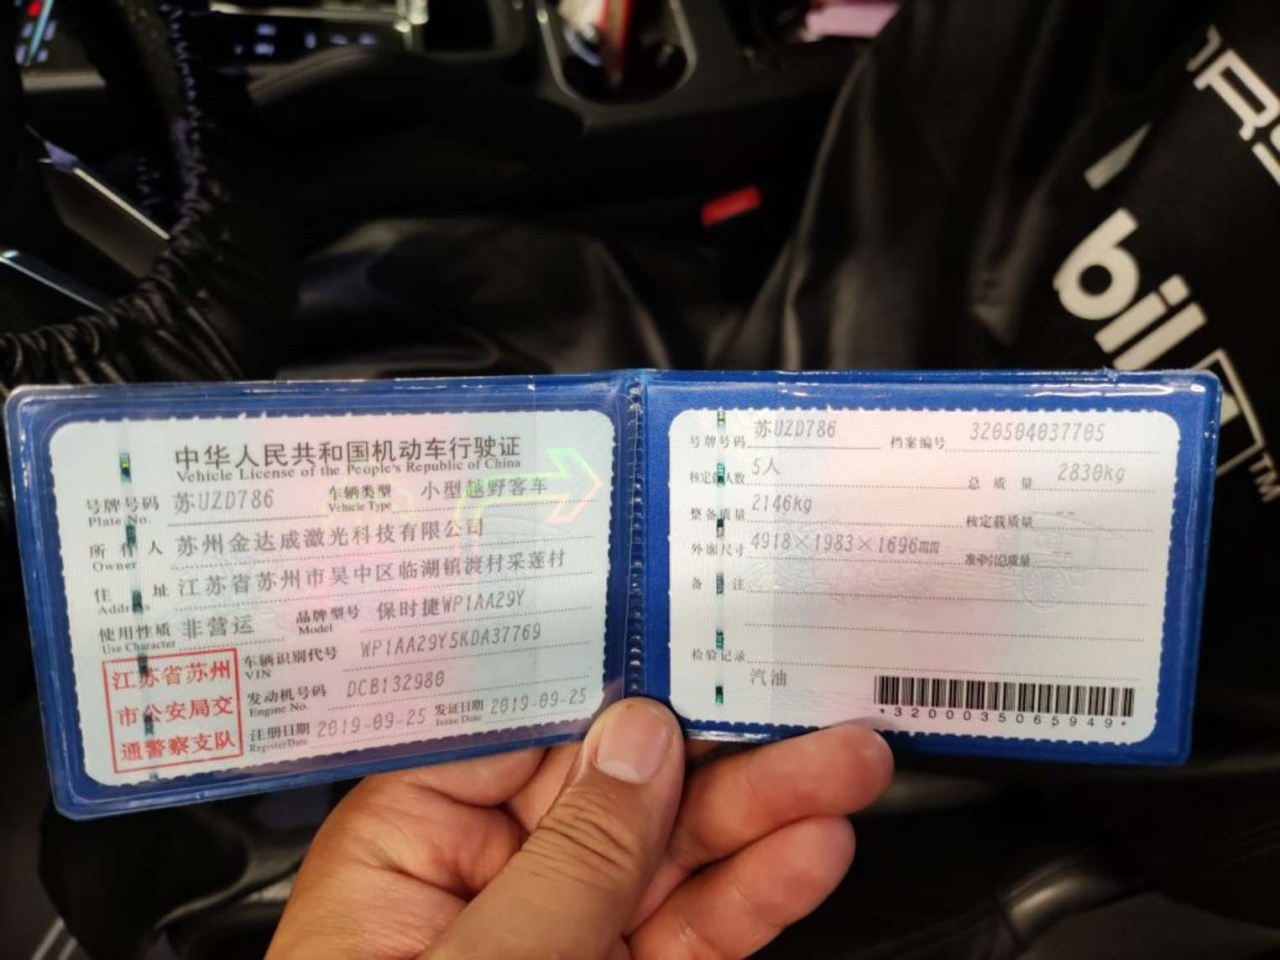 中华人民共和国机动车行驶证
Vehicle License of the People's Republic of China
号牌号码 苏UZD786 车辆类型 小型越野客车
Plate No. Vehicle Type
所有人 苏州金达成激光科技有限公司
Owner
住址 江苏省苏州市吴中区临湖镇渡村采莲村
Address
使用性质 非营运 品牌型号 保时捷WP1AA29Y
Use Character Model
江苏省苏州
市公安局交
通警察支队
车辆识别代号 WP1AA29Y5KDA37769
VIN
发动机号码 DCB132980
Engine No.
注册日期 2019-09-25 发证日期 2019-09-25
Register Date Issue Date
号牌号码 苏UZD786 档案编号 320504037705
核定载人数 5人 总质量 2830kg
整备质量 2146kg 核定载质量 --
外廓尺寸 4918×1983×1696mm 准牵引总质量 --
备注
检验记录
汽油
*3200035065949*
bil
TM